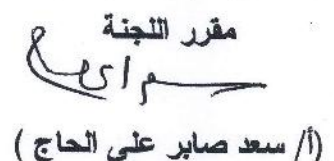 مقرر اللجنة
(أ/ سعد صابر علي الحاج )